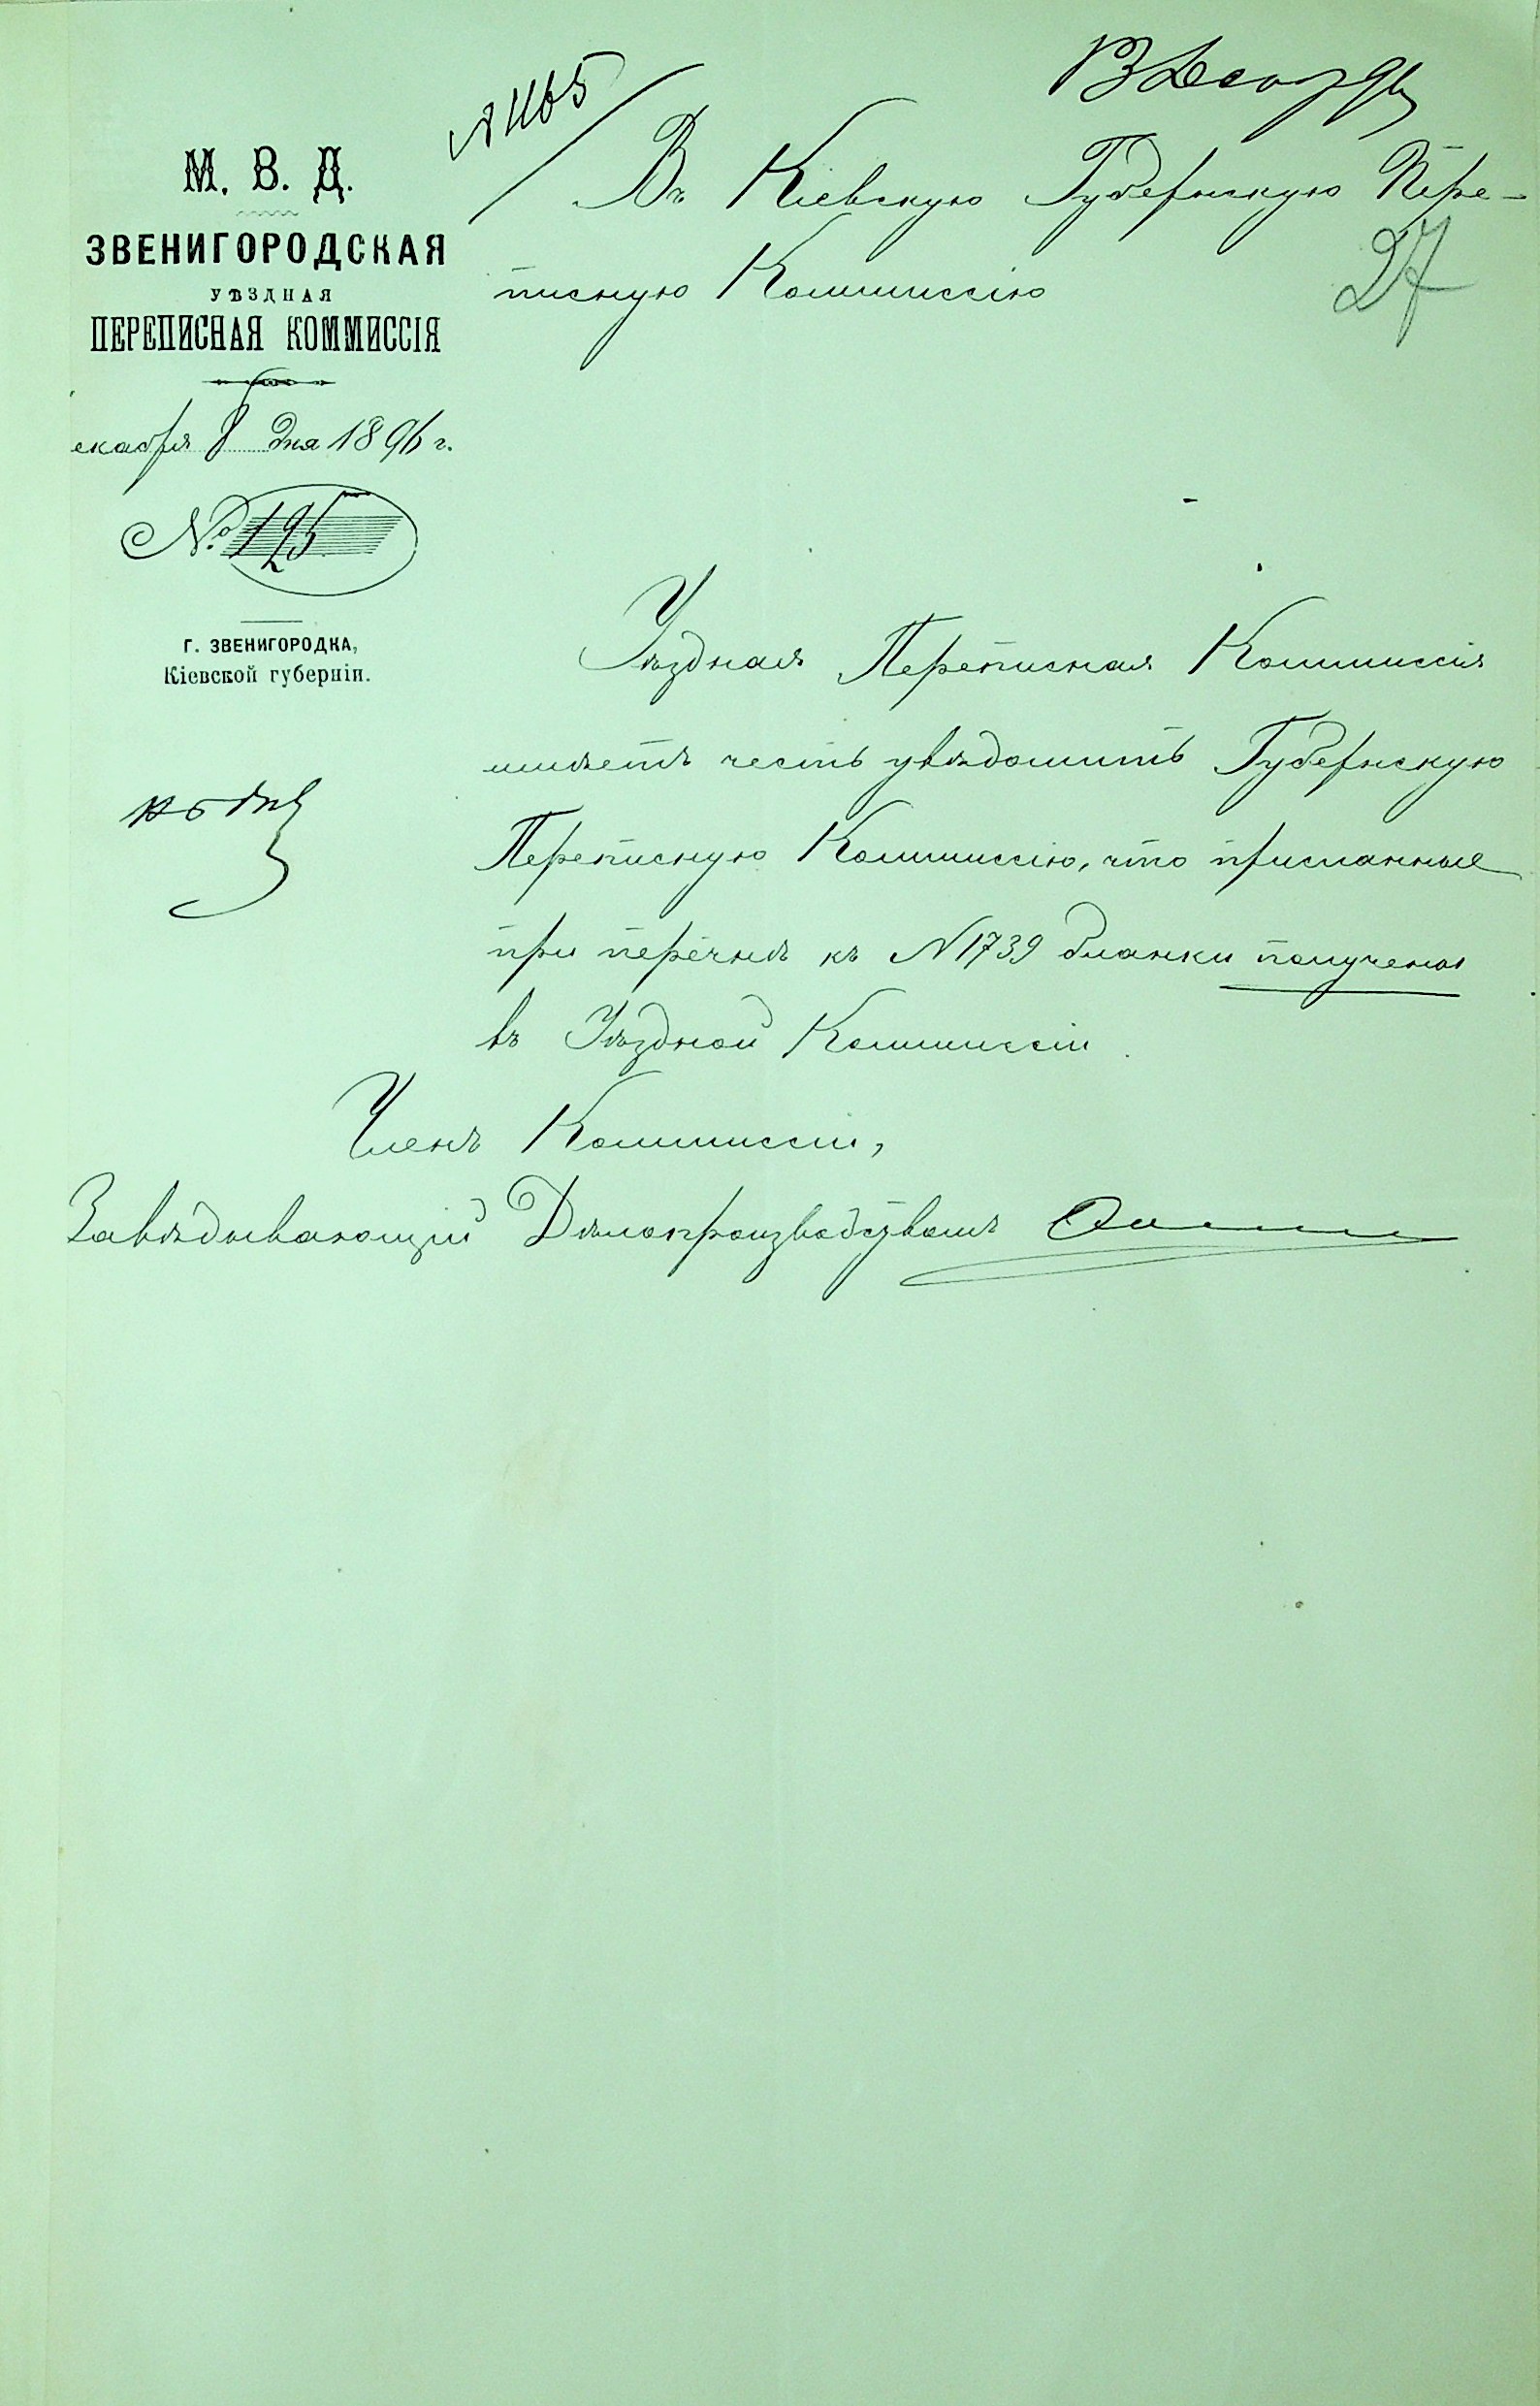 № 1165
М. В. Д.
ЗВЕНИГОРОДСКАЯ
УѢЗДНАЯ
ПЕРЕПИСНАЯ КОММИССІЯ
екабря 8 дня 1896 г.
№ 125
Г. ЗВЕНИГОРОДКА,
Кіевской губерніи.
Въ Кіевскую Губернскую Пере-
писную Коммиссію
27
Уѣздная Переписная Коммиссія
имѣетъ честь увѣдомить Губернскую
Переписную Коммиссію, что присланные
при перечнѣ къ №1739 бланки получены
въ Уѣздной Коммиссіи.
Членъ Коммиссіи,
Завѣдывающій Дѣлопроизводствомъ